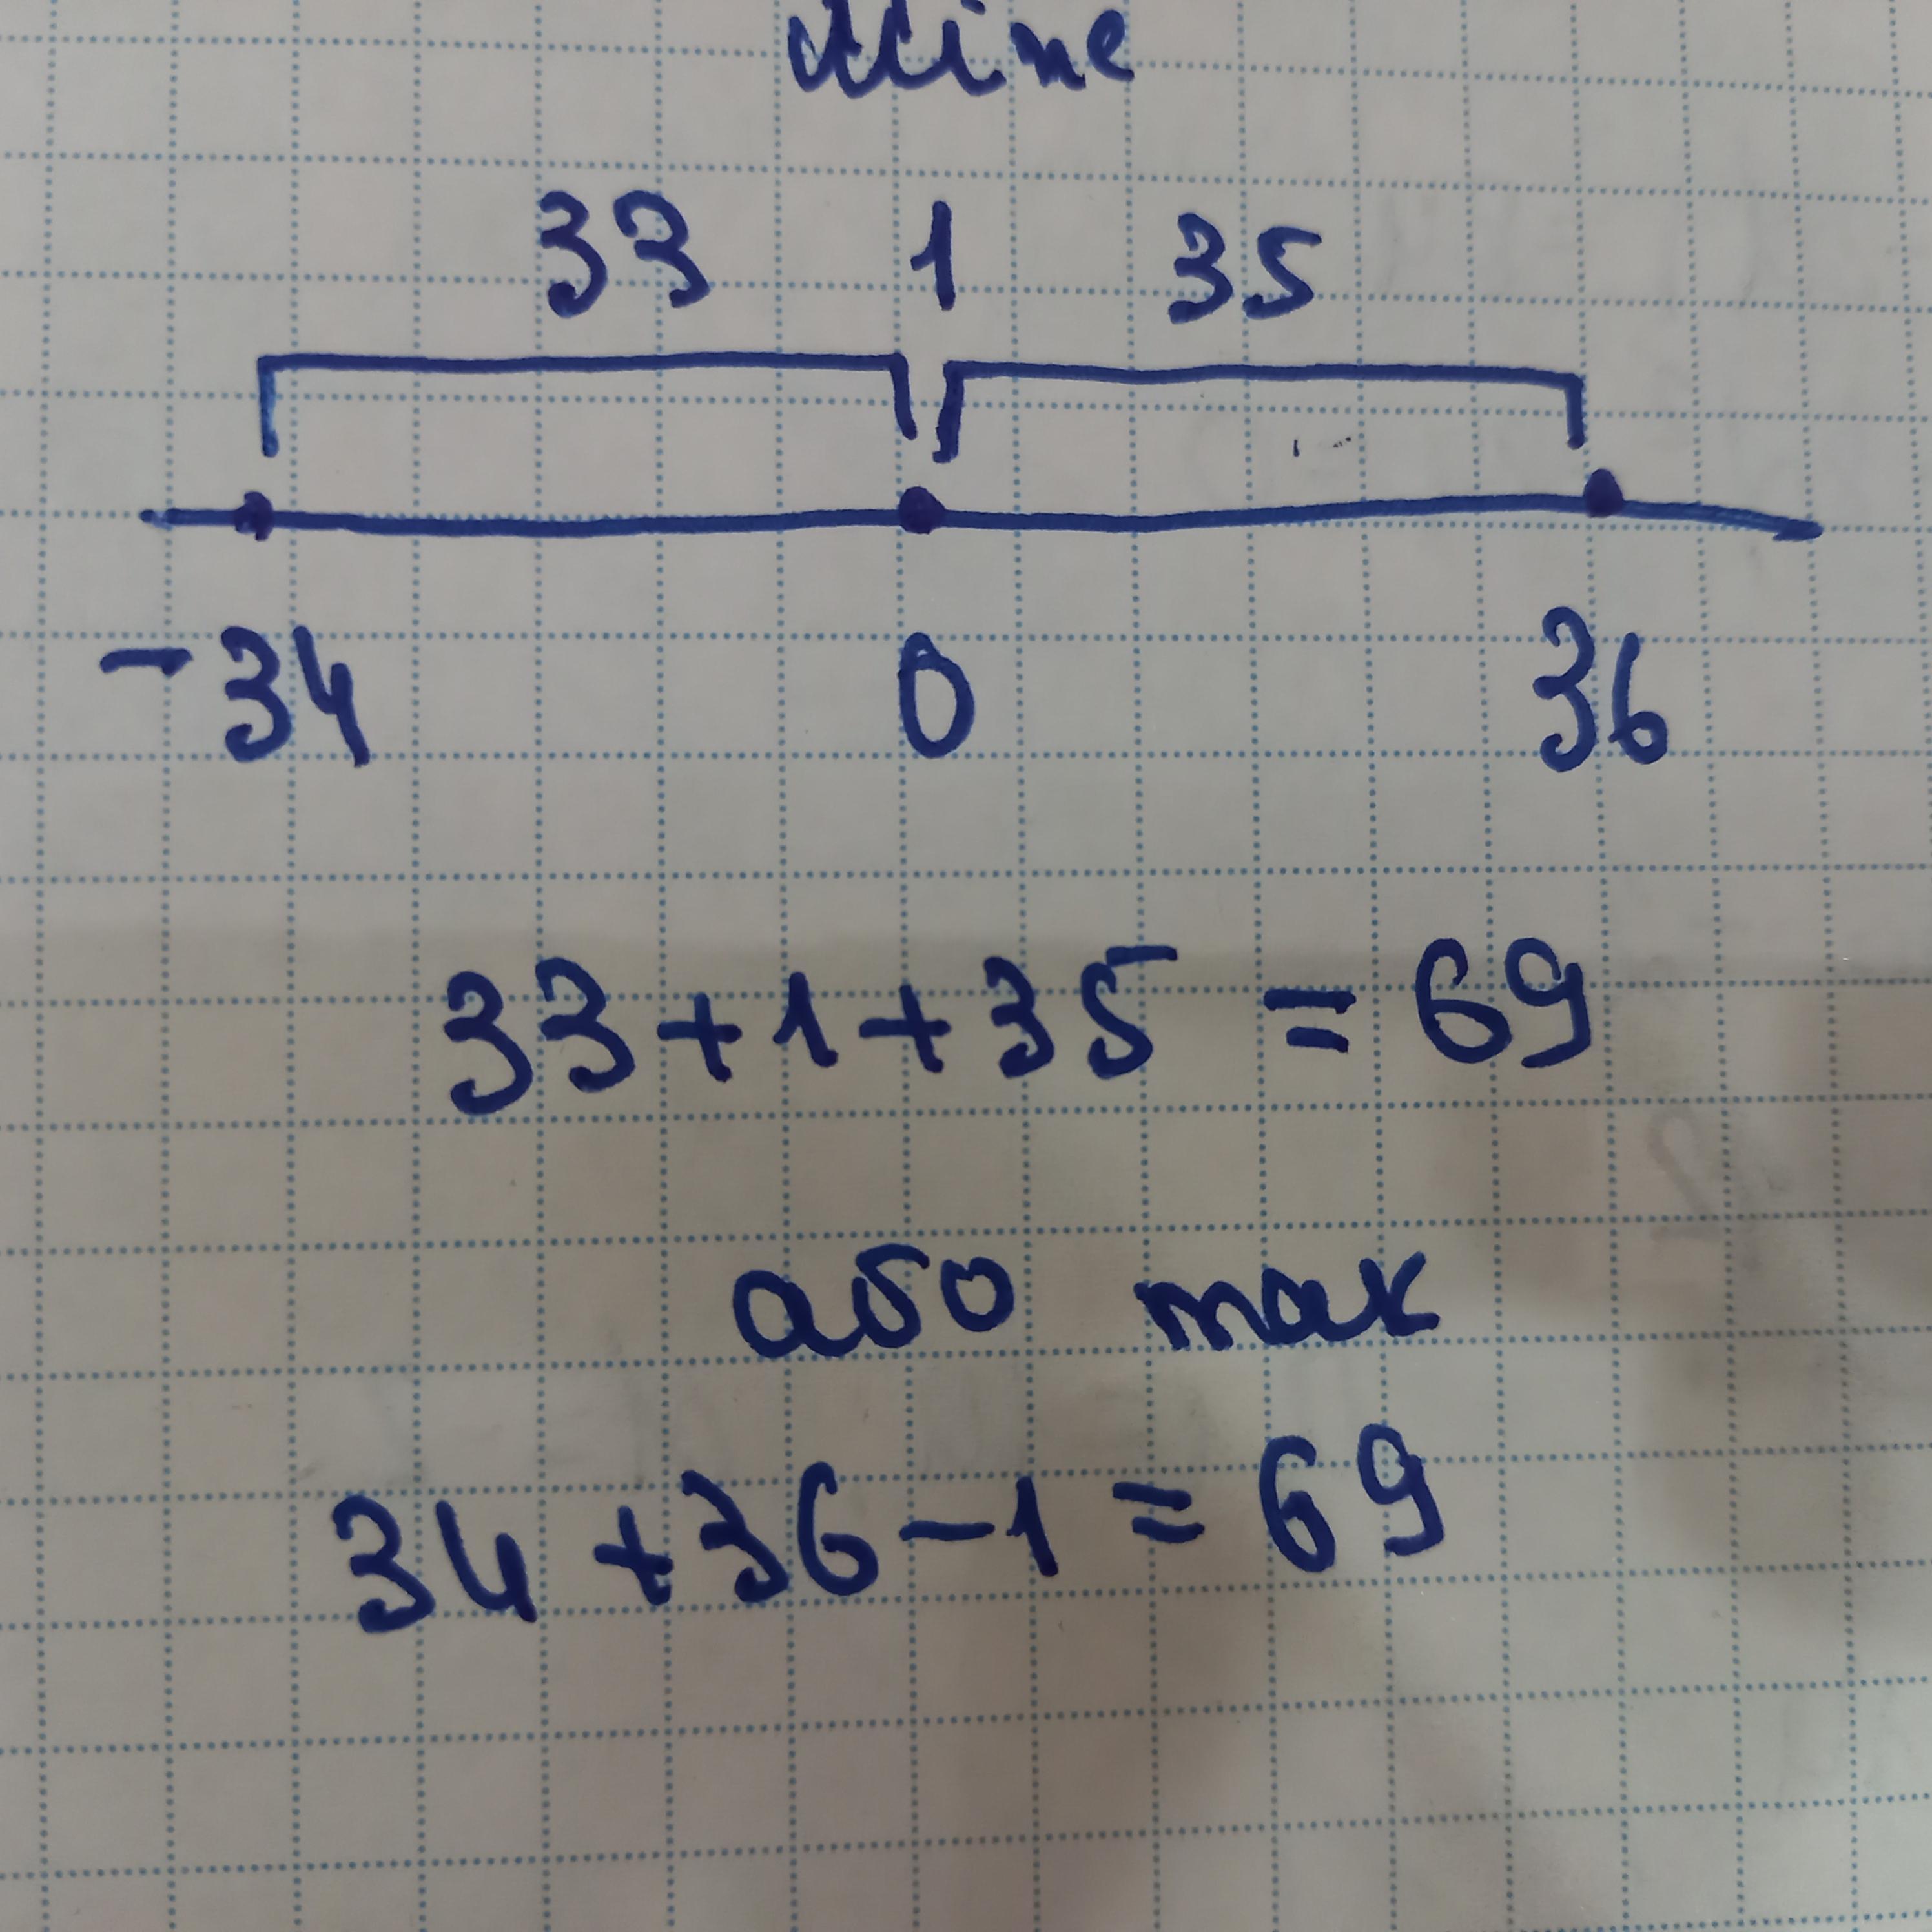 33 1 35
-34 0 36
33+1+35 = 69
або так
34+36-1=69